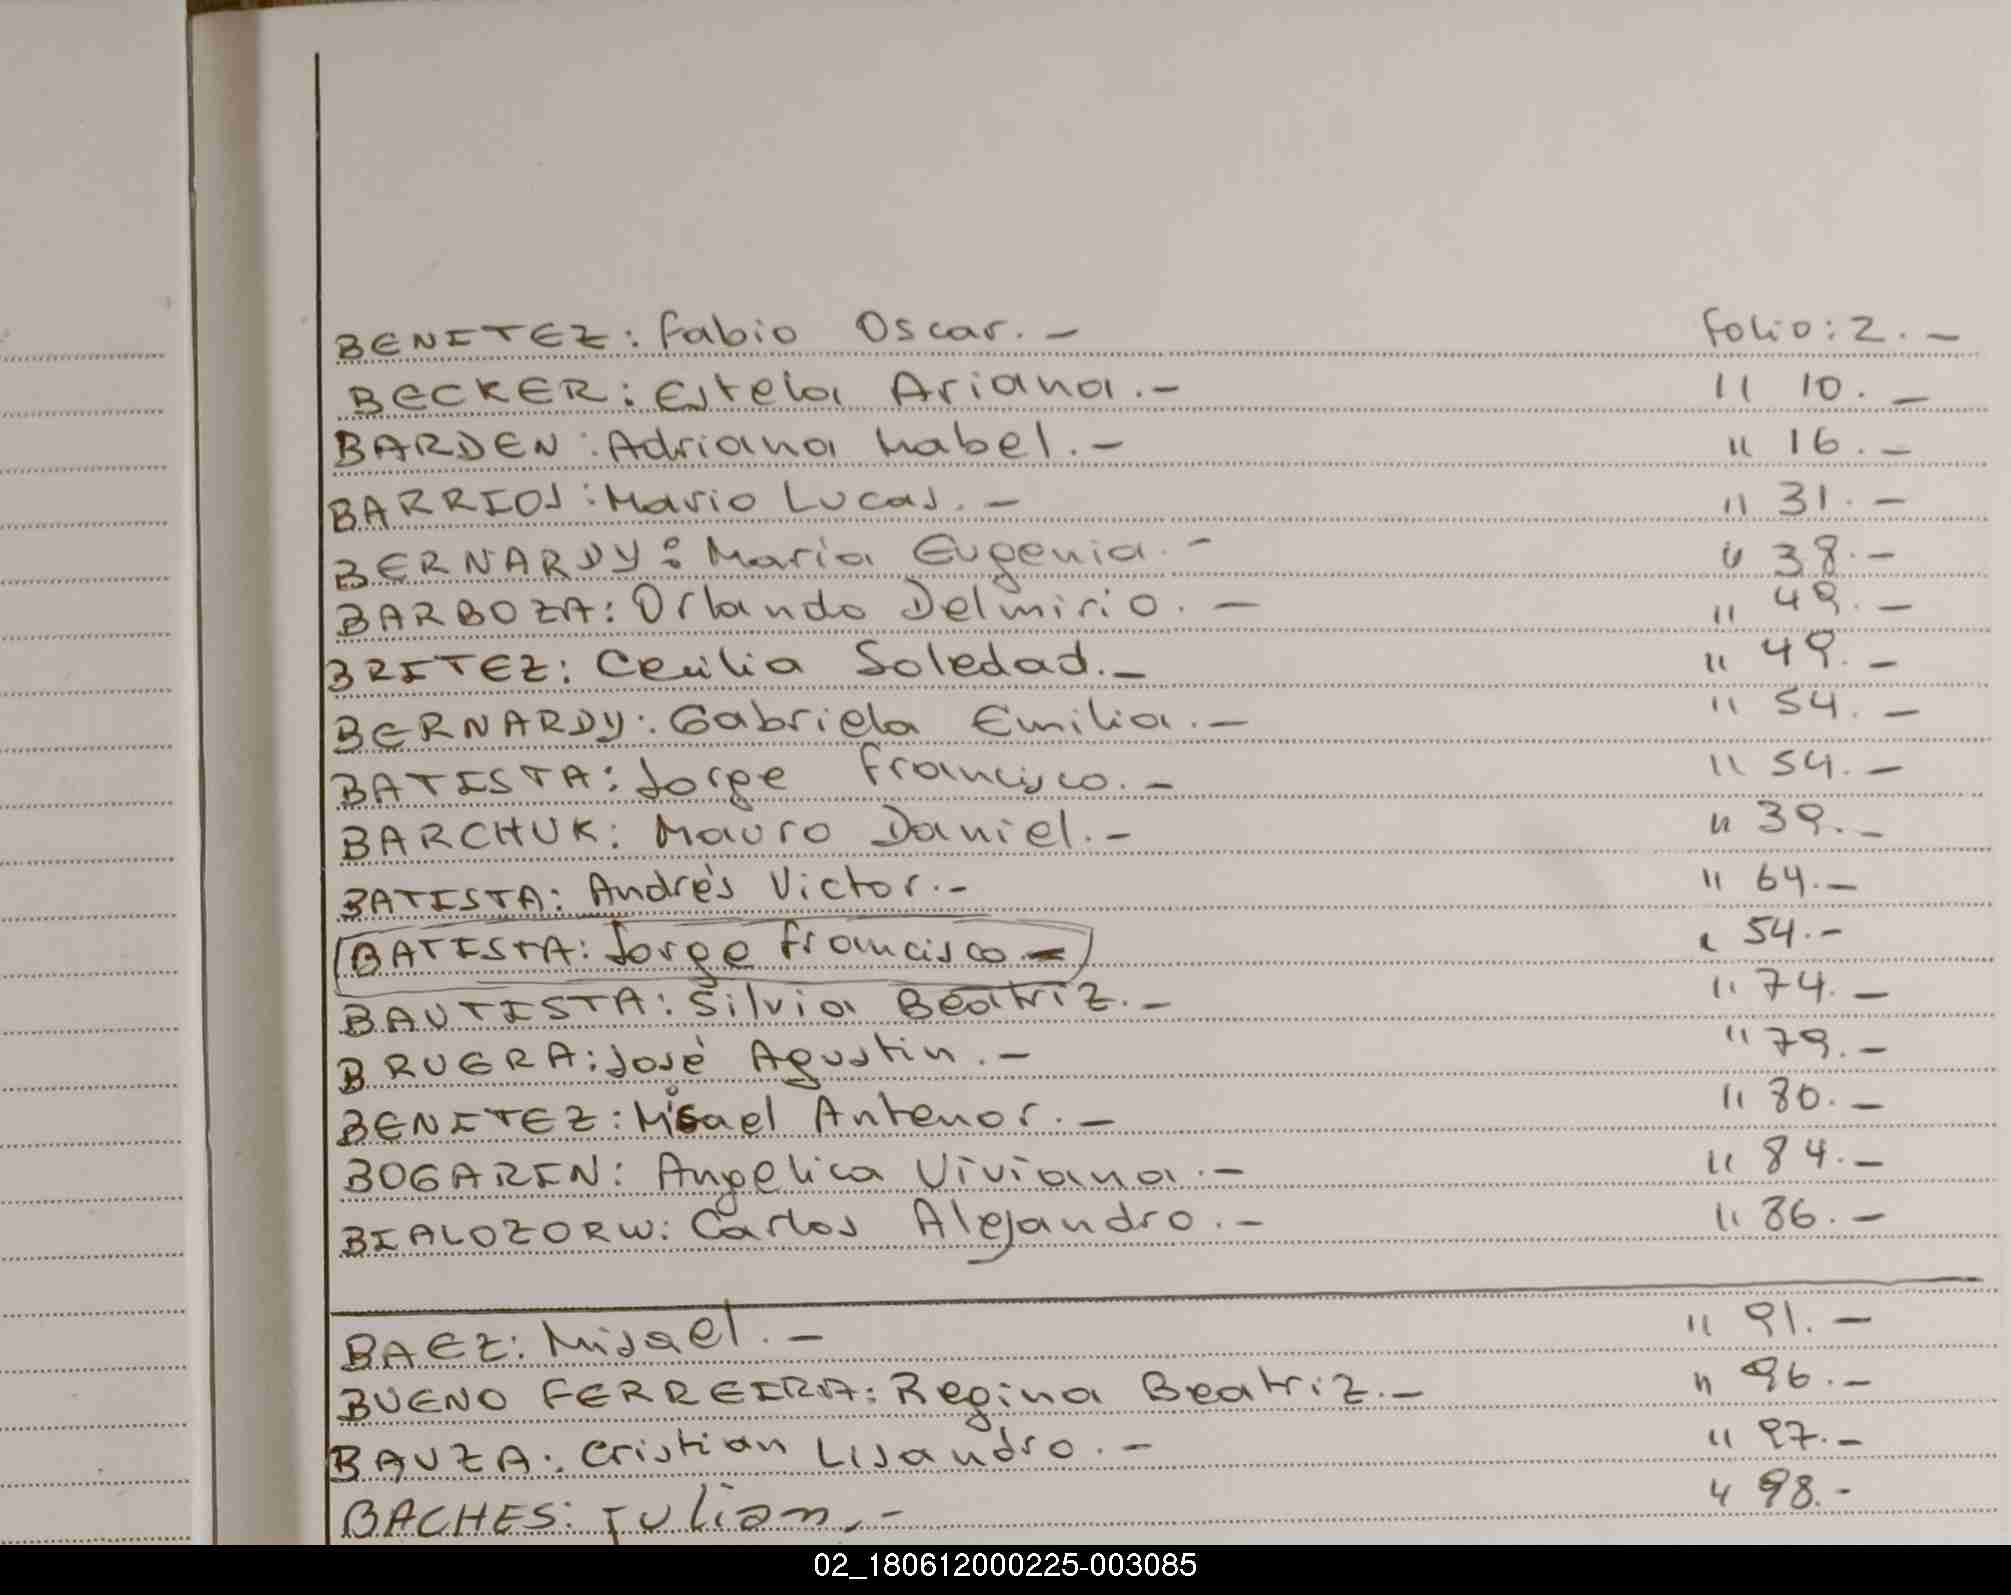 BENITEZ: Fabio Oscar.- Folio: 2.-
BECKER: Estela Ariana.- " 10.-
BARDEN: Adriana Mabel.- " 16.-
BARRIOS: Mario Lucas.- " 31.-
BERNARDY: María Eugenia.- " 38.-
BARBOZA: Orlando Delmirio.- " 49.-
BRITEZ: Cecilia Soledad.- " 49.-
BERNARDY: Gabriela Emilia.- " 54.-
BATISTA: Jorge Francisco.- " 54.-
BARCHUK: Mauro Daniel.- " 39.-
BATISTA: Andrés Victor.- " 64.-
BATISTA: Jorge Francisco.- " 54.-
BAUTISTA: Silvia Beatriz.- " 74.-
BRUGRA: José Agustin.- " 79.-
BENITEZ: Misael Antenor.- " 80.-
BOGARIN: Angelica Viviana.- " 84.-
BIALOZORW: Carlos Alejandro.- " 86.-
BAEZ: Misael.- " 91.-
BUENO FERREIRA: Regina Beatriz.- " 96.-
BAUZA: Cristian Lisandro.- " 97.-
BACHES: Julian.- " 98.-
02_180612000225-003085